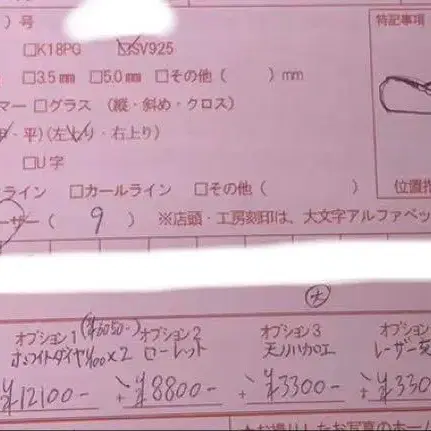 )号
□K18PG ☑SV925
□3.5mm □5.0mm □その他( )mm
マー □グラス (縦・斜め・クロス)
・平)(左上り・右上り)
□U字
ライン □カールライン □その他( )
ーザー( 9 ) ※店頭・工房刻印は、大文字アルファベッ
特記事項
位置指
大
オプション1 (¥6050-) オプション2 オプション3 オプション
ホワイトダイヤ1/100×2 ローレット レーザー
¥12100- + ¥8800- + ¥3300- + ¥330